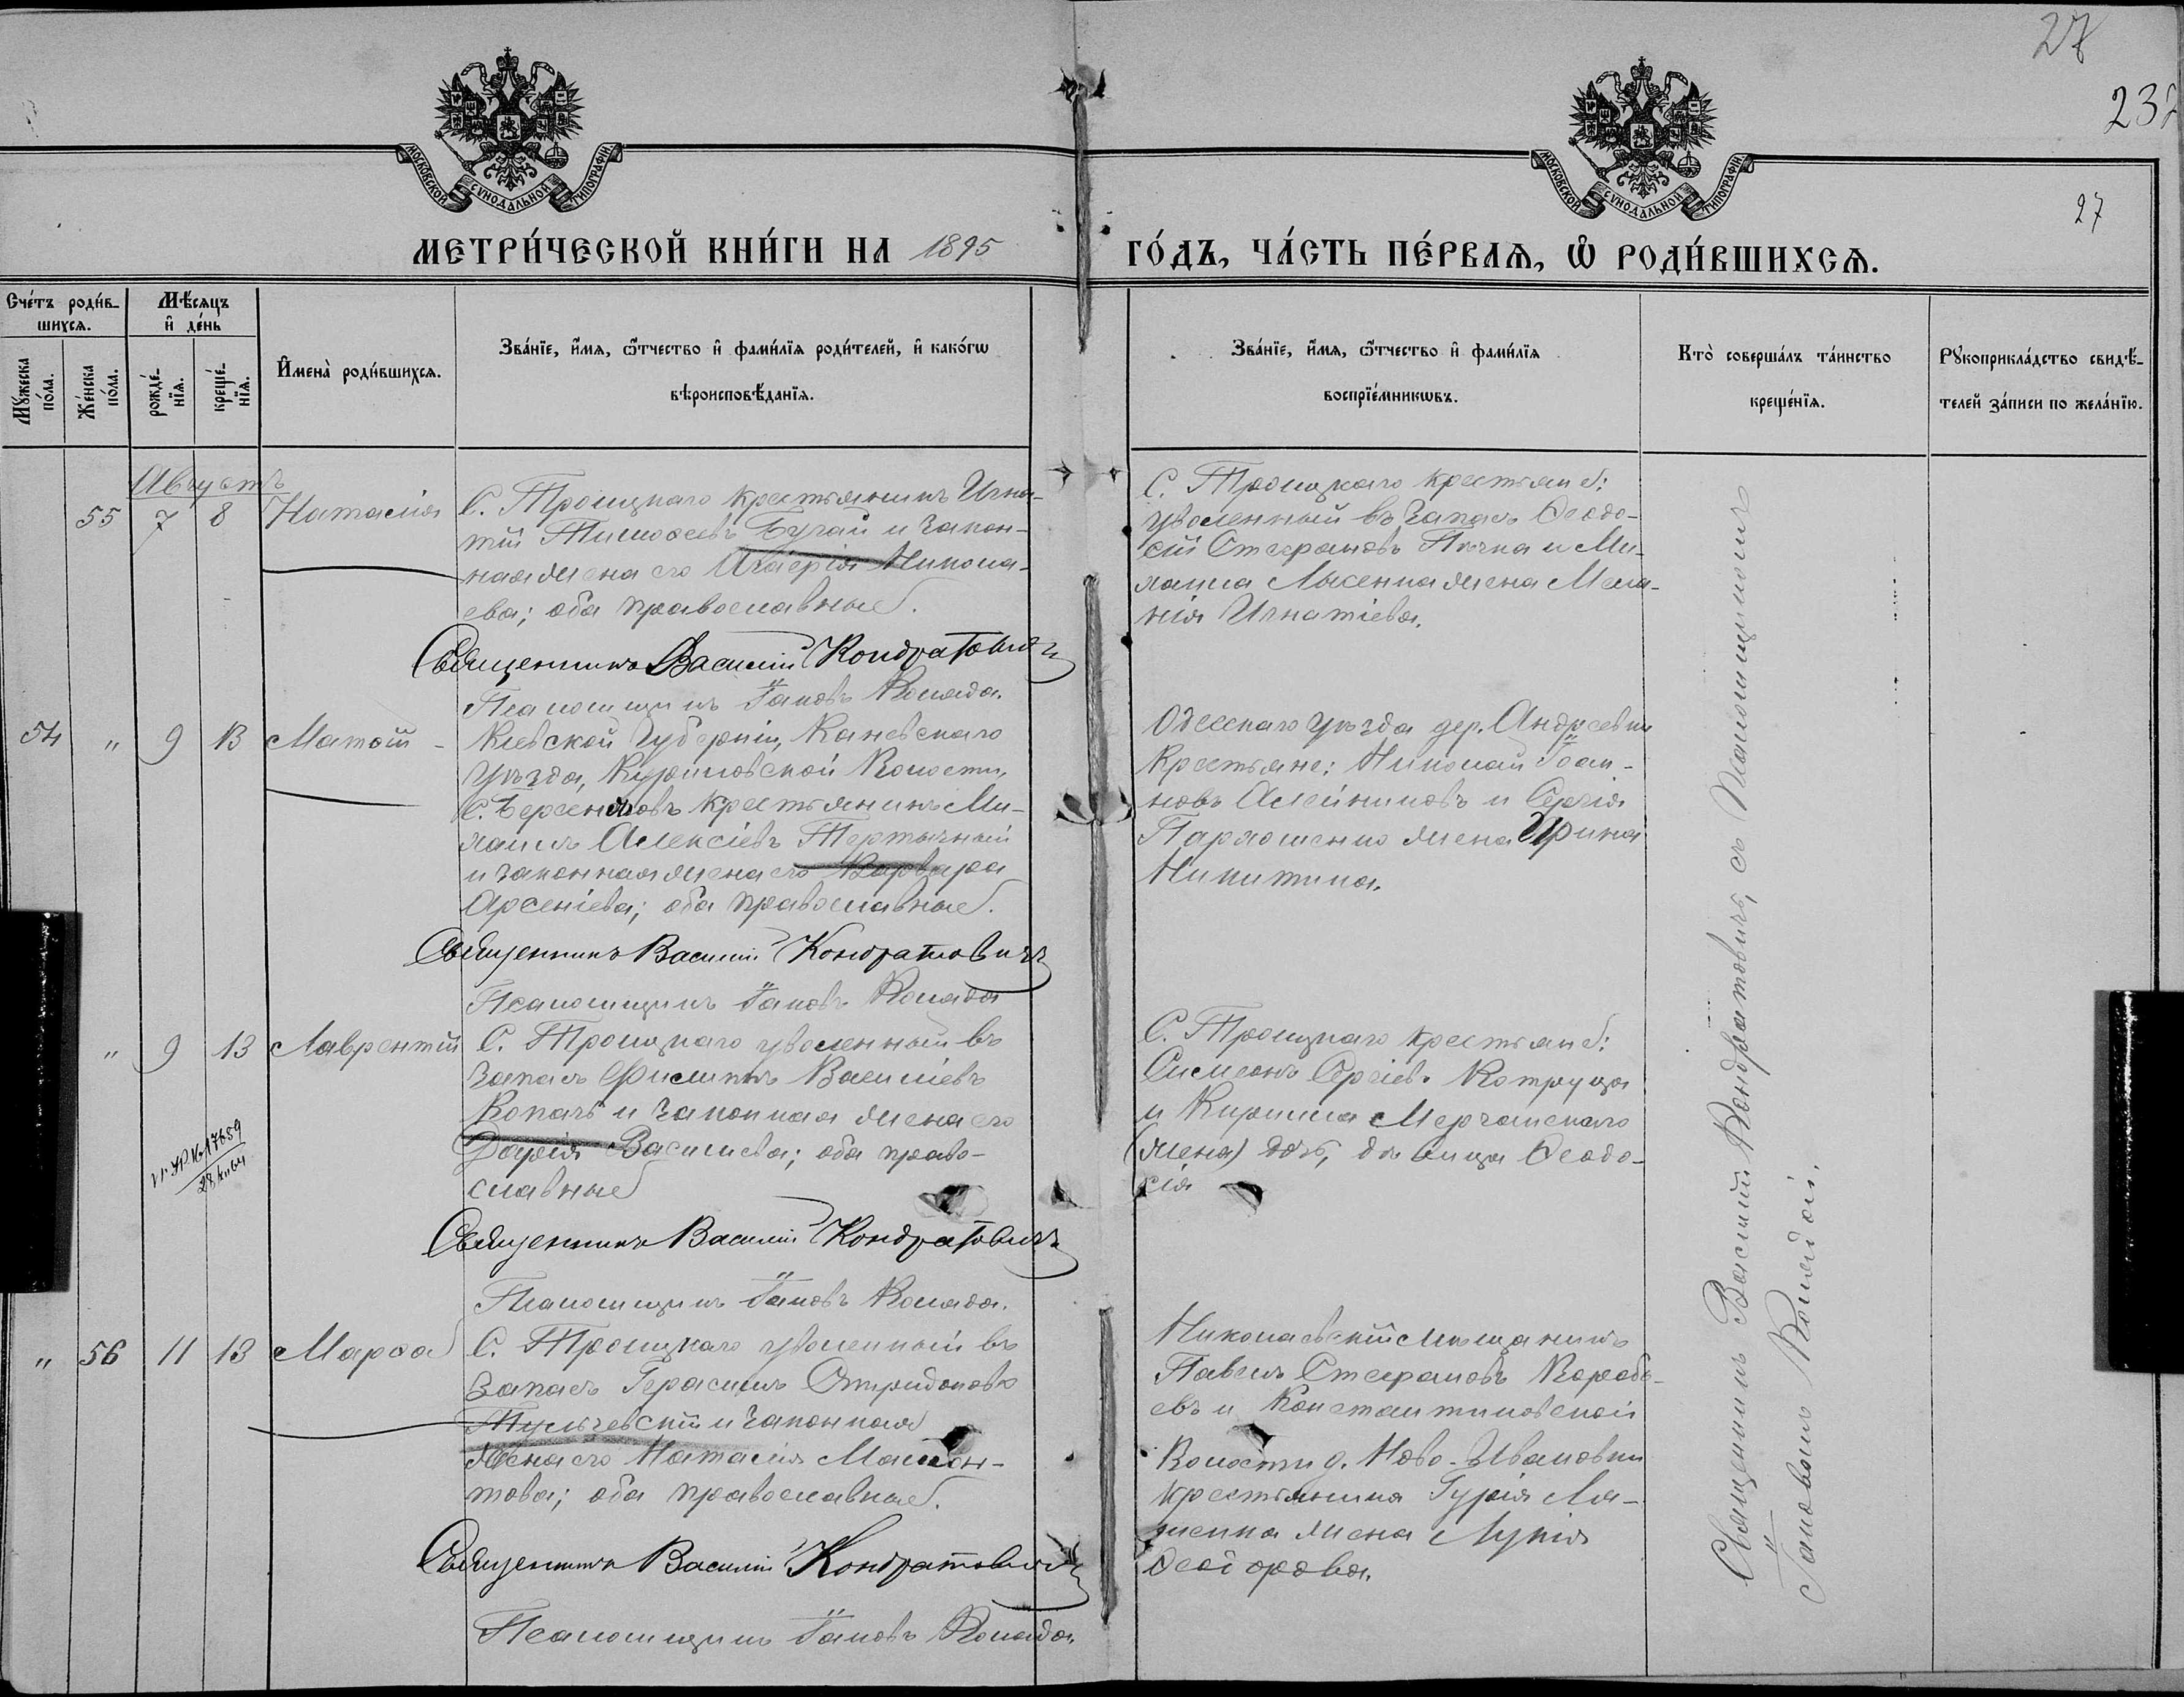 27
232
27
МОСКОВСКОЙ СѴНОДАЛЬНОЙ ТИПОГРАФІИ
МОСКОВСКОЙ СѴНОДАЛЬНОЙ ТИПОГРАФІИ
МЕТРИ́ЧЕСКОЙ КНИ́ГИ НА 1895 ГО́ДЪ, ЧА́СТЬ ПЕ́РВАѦ, Ѽ РОДИ́ВШИХСѦ.
Сче́тъ роди́в-
шихсѧ.
Мꙋ́жеска
по́ла.
Же́нска
по́ла.
Мѣ́сѧцъ
и҆ де́нь
рожде́-
нїѧ.
креще́-
нїѧ.
И҆мена̀ роди́вшихсѧ.
Зва́нїе, и҆́мѧ, ѻ҆́тчество и҆ фами́лїѧ роди́телей, и҆ како́гѡ
вѣроисповѣ́данїѧ.
Зва́нїе, и҆́мѧ, ѻ҆́тчество и҆ фами́лїѧ
воспрїе́мникѡвъ.
Кто̀ соверша́лъ та́инство
креще́нїѧ.
Рꙋкоприкла́дство свидѣ́-
телей за́писи по жела́нїю.
Августъ
55 7 8 Наталія
С. Троицкаго крестьянинъ Игна-
тій Тимоѳеевъ Бугай и закон-
ная жена его Гликерія Никола-
ева; оба православные.
Священникъ Василій Кондратовичъ
Псаломщикъ Іаковъ Коляда.
С. Троицкаго крестьяне:
уволенный въ запасъ Ѳеодо-
сій Стефановъ и Ми-
хаила Лысенка жена Мела-
нія Игнатіева.
54 " 9 13 Матѳій
Кіевской Губерніи, Каневскаго
Уѣзда, Куриловской Волости,
С. Берсенковъ крестьянинъ Ми-
хаилъ Алексіевъ Тертычный
и законная жена его Варвара
Арсеніева; оба православные.
Священникъ Василій Кондратовичъ
Псаломщикъ Іаковъ Коляда
Одесскаго уѣзда дер. Андреевки
крестьяне: Николай Іоан-
новъ Алейниковъ и Сергія
Пархоменко жена Ирина
Никитина.
" 9 13 Лаврентій
С. Троицкаго уволенный въ
запасъ Филиппъ Василіевъ
Копачъ и законная жена его
Дарія Василиева; оба право-
славные
Священникъ Василій Кондратовичъ
Псаломщикъ Іаковъ Коляда.
С. Троицкаго крестьяне:
Симеонъ Сергіев. Котруца
и Кирилла Мержанскаго
(жена) дочь, дѣвица Ѳеодо-
сія
" 56 11 13 Марѳа
С. Троицкаго уволенный въ
запасъ Герасимъ Спиридоновъ
Тульчевскій и законная
жена его Наталія Мамон-
това; оба православные.
Священникъ Василій Кондратовичъ
Псаломщикъ Іаковъ Коляда.
Николаевскій мѣщанинъ
Павелъ Стефановъ Воробь-
евъ и Константиновской
Волости д. Ново-Ивановки
крестьянина Гурія Ля-
шенка жена Лукія
Ѳеодорова.
Священникъ Василій Кондратовичъ, съ Псаломщикомъ
Іаковомъ Колядой.